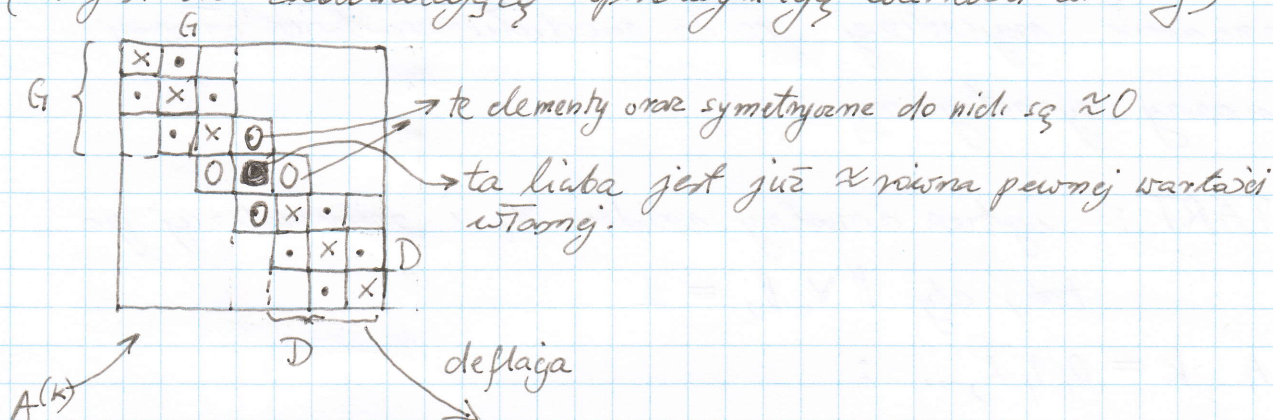 G
G
te elementy oraz symetryczne do nich są ≈ 0
ta liczba jest już ≈ równa pewnej wartości
własnej.
D
D
deflacja
A^(k)